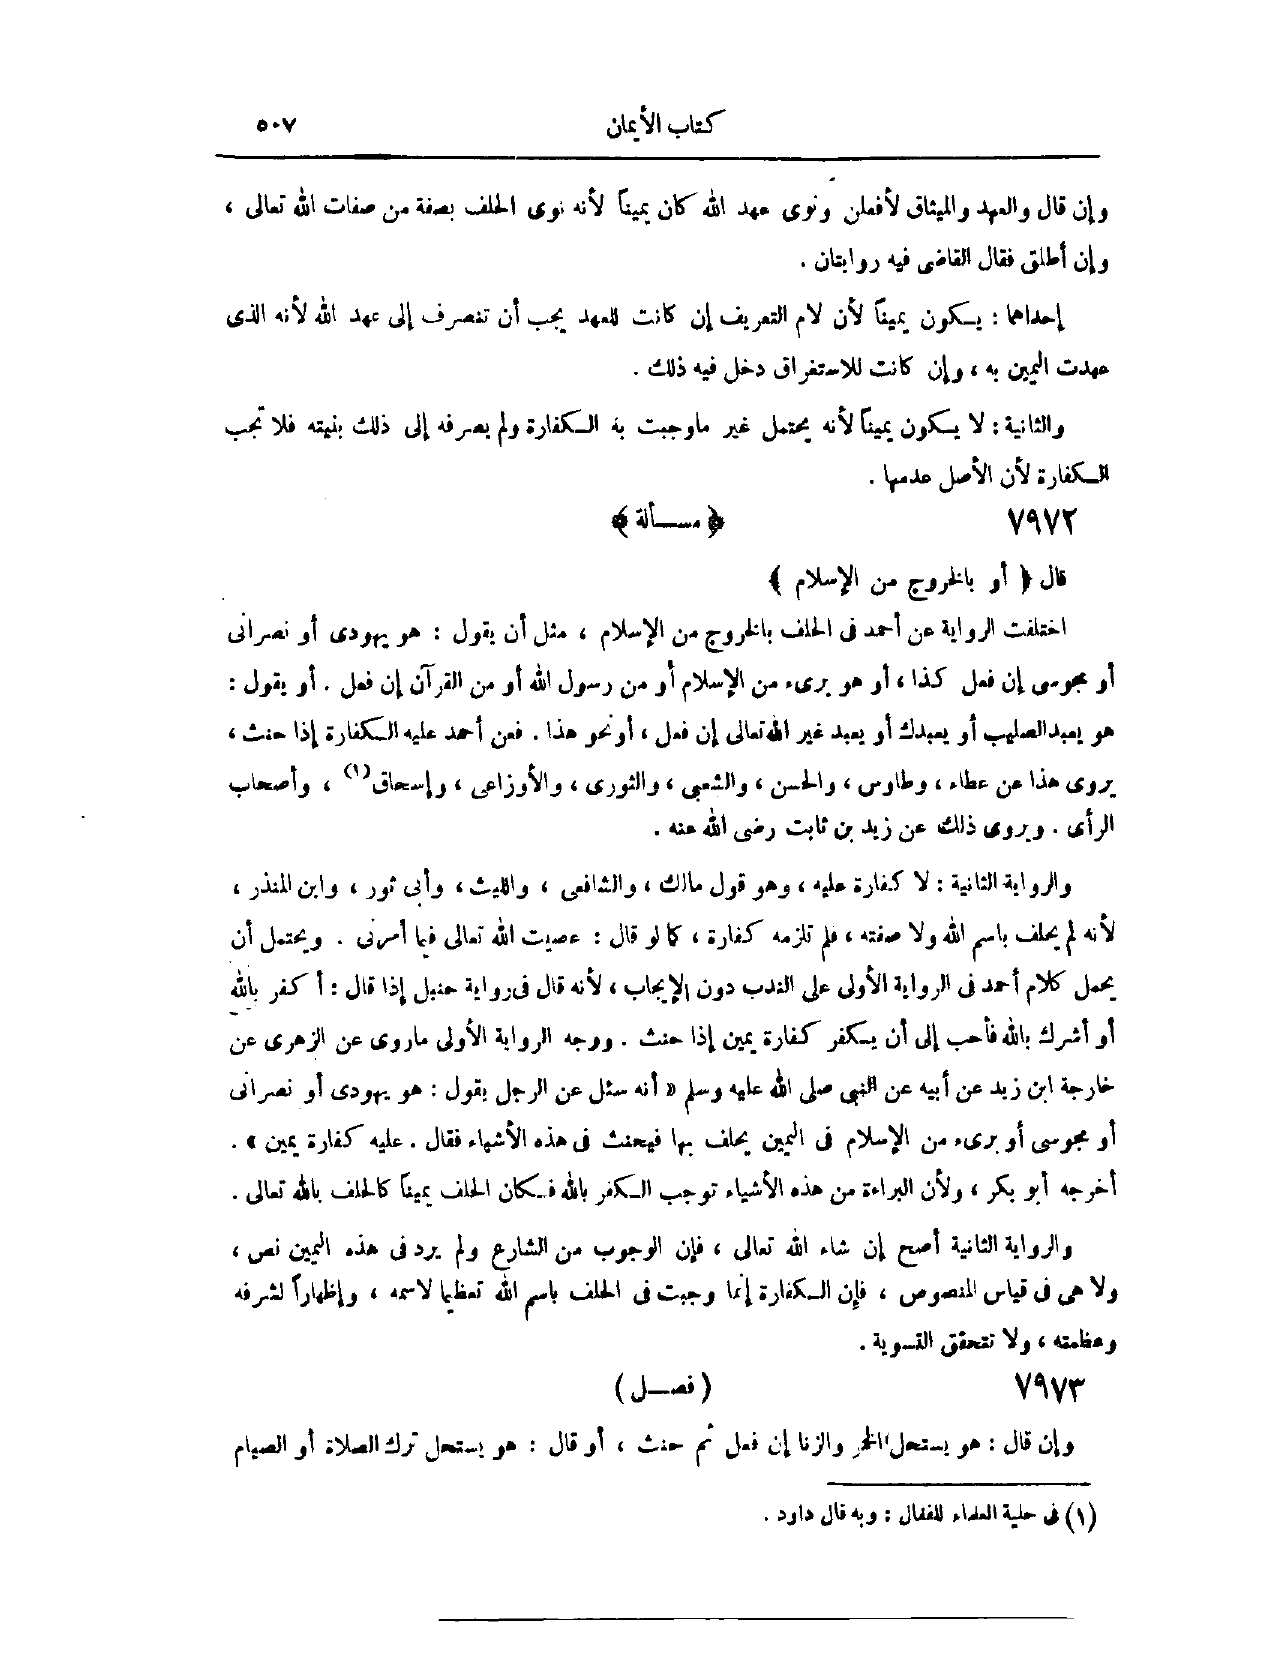 كتاب الأيمان ٥٠٧
وإن قال والعهد والميثاق لأفعلن ونوى عهد الله كان يميناً لأنه نوى الحلف بصفة من صفات الله تعالى ،
وإن أطلق فقال القاضى فيه روايتان .
إحداهما : يكون يميناً لأن لام التعريف إن كانت للعهد يجب أن تنصرف إلى عهد الله لأنه الذى
عهدت اليمين به ، وإن كانت للاستغراق دخل فيه ذلك .
والثانية : لا يكون يميناً لأنه يحتمل غير ماوجبت به الكفارة ولم يصرفه إلى ذلك بنيته فلا تجب
الكفارة لأن الأصل عدمها .
٧٩٧٢ ﴿ مسألة ﴾
قال ﴿ أو بالخروج من الإسلام ﴾
اختلفت الرواية عن أحمد فى الحلف بالخروج من الإسلام ، مثل أن يقول : هو يهودى أو نصرانى
أو مجوسى إن فعل كذا ، أو هو برىء من الإسلام أو من رسول الله أو من القرآن إن فعل . أو يقول :
هو يعبد الصليب أو يعبدك أو يعبد غير الله تعالى إن فعل ، أو نحو هذا . فعن أحمد عليه الكفارة إذا حنث ،
يروى هذا عن عطاء ، وطاوس ، والحسن ، والشعبى ، والثورى ، والأوزاعى ، وإسحاق (١) ، وأصحاب
الرأى . ويروى ذلك عن زيد بن ثابت رضى الله عنه .
والرواية الثانية : لا كفارة عليه ، وهو قول مالك ، والشافعى ، والليث ، وأبى ثور ، وابن المنذر ،
لأنه لم يحلف باسم الله ولا صفته ، فلم تلزمه كفارة ، كما لو قال : عصيت الله تعالى فيما أمرنى . ويحتمل أن
يحمل كلام أحمد فى الرواية الأولى على الندب دون الإيجاب ، لأنه قال فى رواية حنبل إذا قال : أ كفر بالله
أو أشرك بالله فأحب إلى أن يكفر كفارة يمين إذا حنث . ووجه الرواية الأولى ماروى عن الزهرى عن
خارجة ابن زيد عن أبيه عن النبى صلى الله عليه وسلم « أنه سئل عن الرجل يقول : هو يهودى أو نصرانى
أو مجوسى أو برىء من الإسلام فى اليمين يحلف بها فيحنث فى هذه الأشياء فقال . عليه كفارة يمين » .
أخرجه أبو بكر ، ولأن البراءة من هذه الأشياء توجب الكفر بالله فكان الحلف يميناً كالحلف بالله تعالى .
والرواية الثانية أصح إن شاء الله تعالى ، فإن الوجوب من الشارع ولم يرد فى هذه اليمين نص ،
ولا هى فى قياس المنصوص ، فإن الكفارة إنما وجبت فى الحلف باسم الله تعظيما لاسمه ، وإظهاراً لشرفه
وعظمته ، ولا تتحقق التسوية .
٧٩٧٣ ( فصل )
وإن قال : هو يستحل الخمر والزنا إن فعل ثم حنث ، أو قال : هو يستحل ترك الصلاة أو الصيام
(١) فى حلية العلماء للقفال : وبه قال داود .